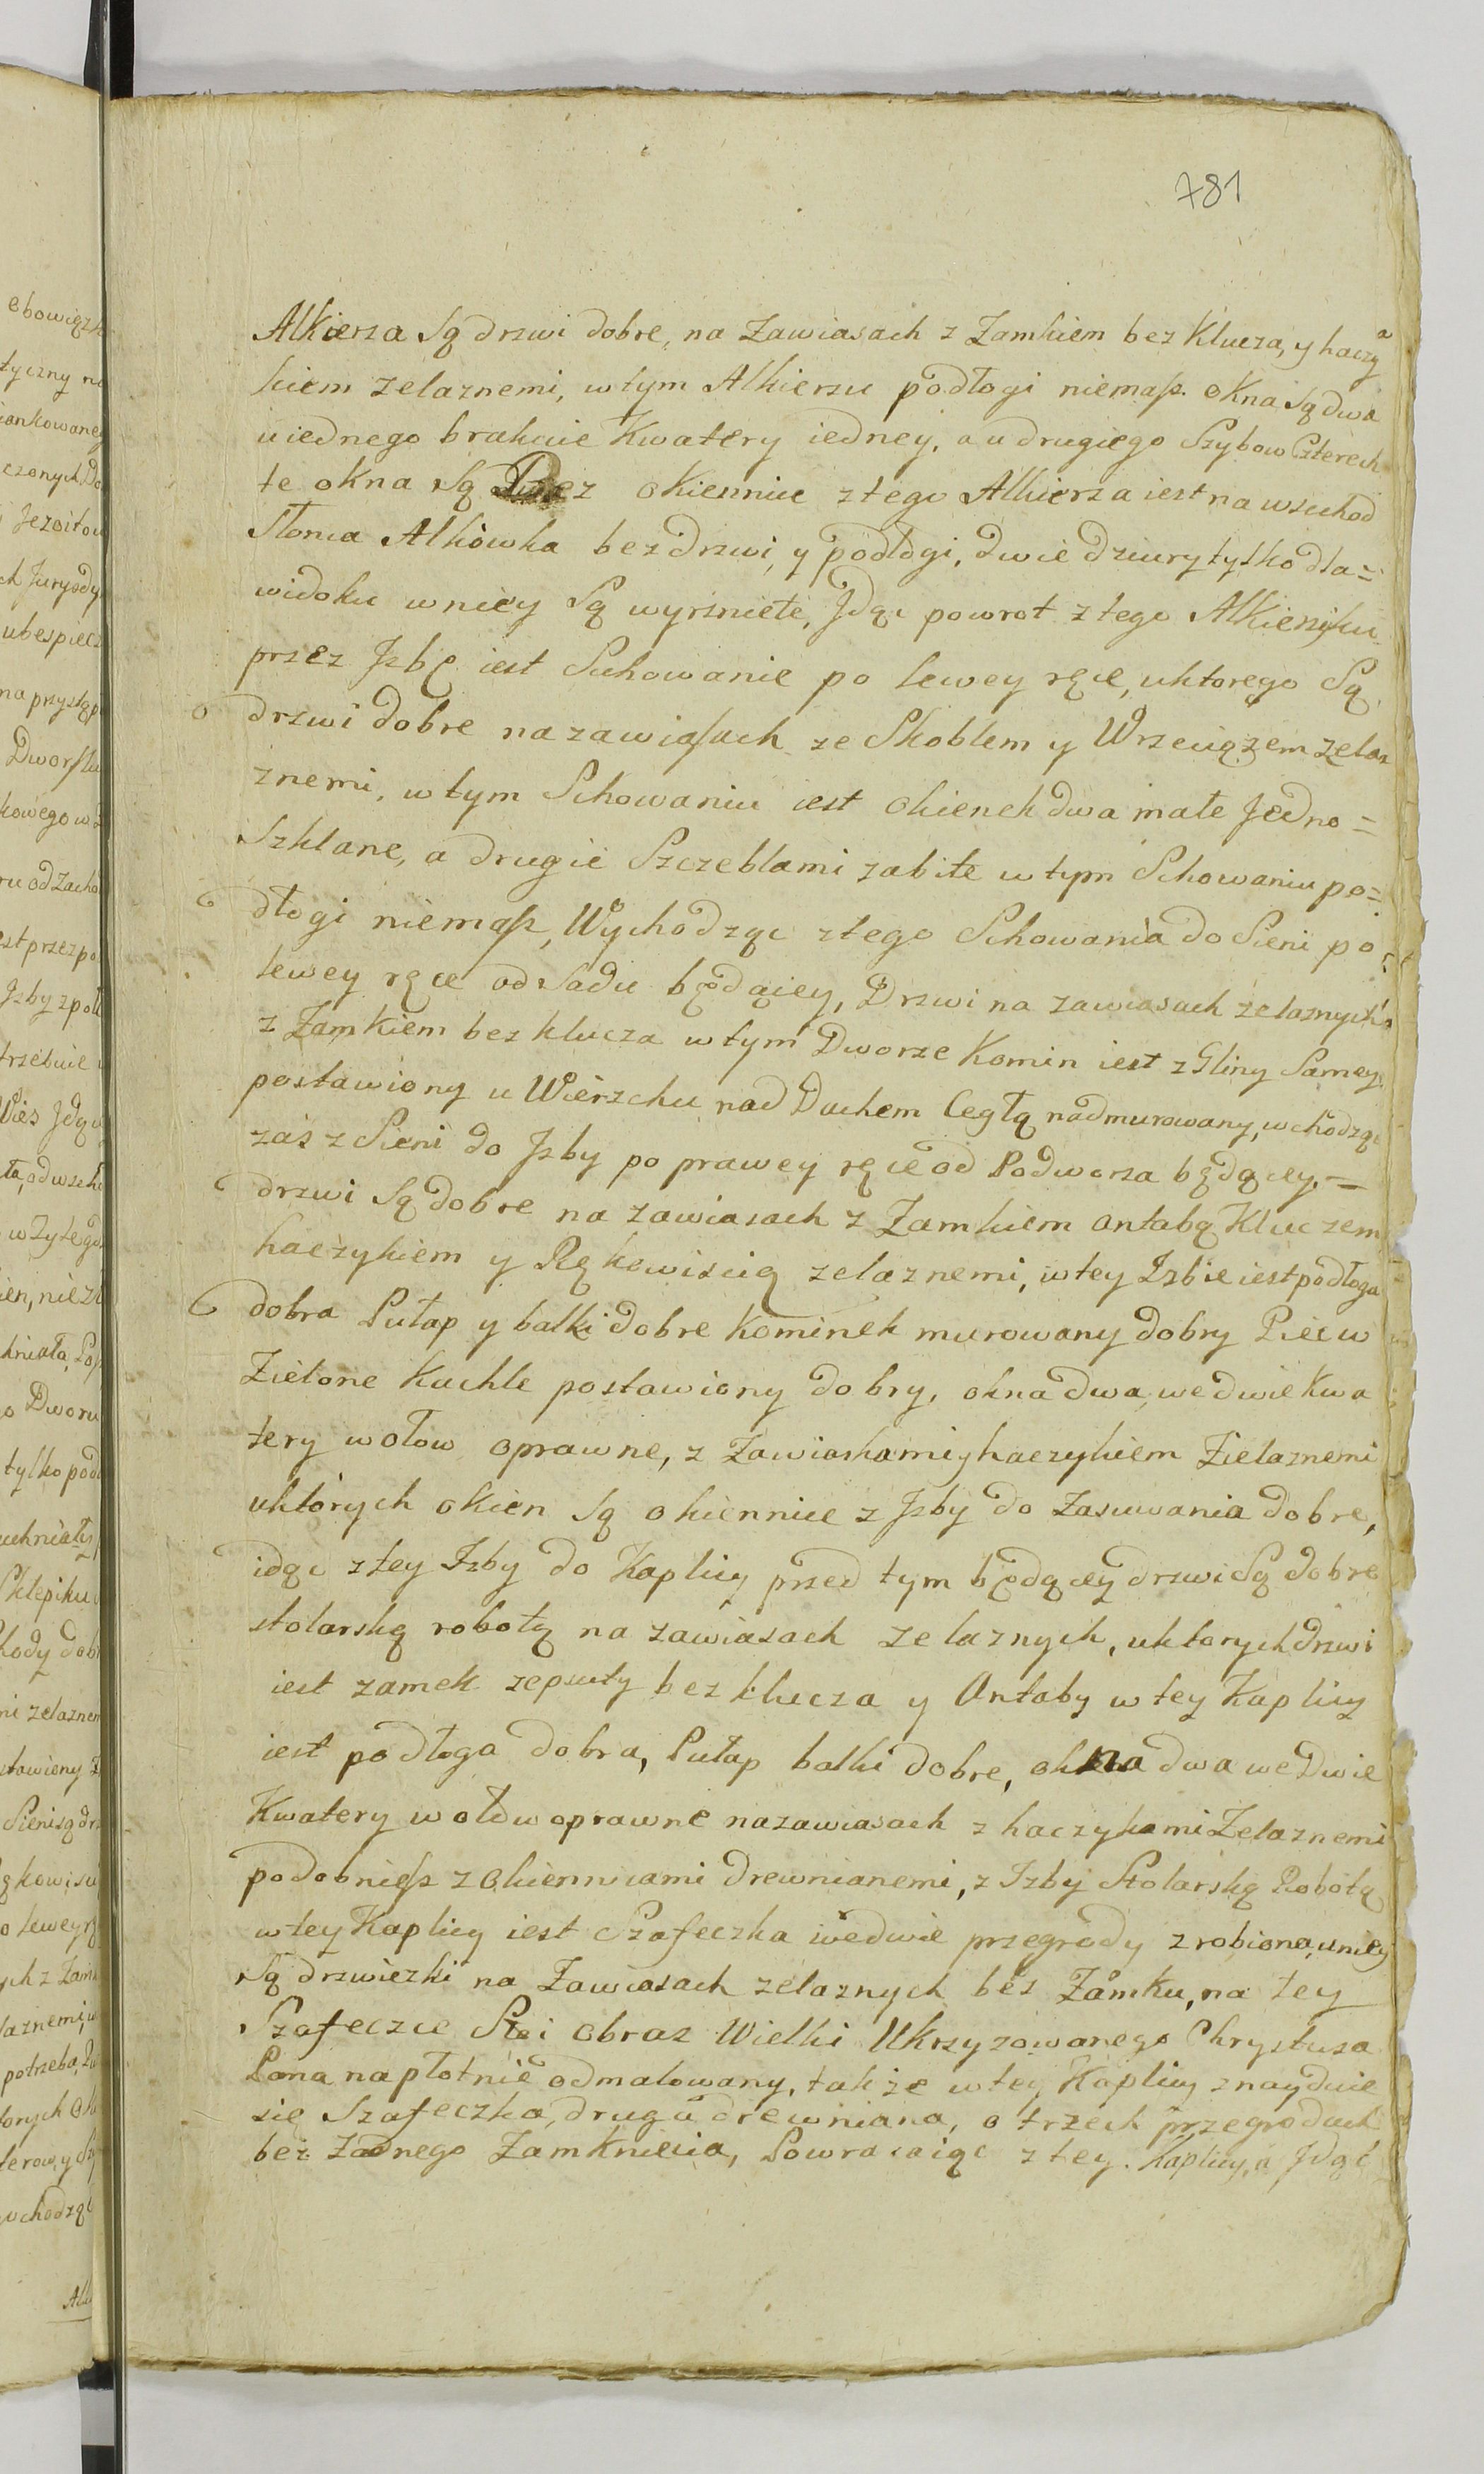 781
Alkierza Są drzwi dobre, na Zawiasach z Zamkiem bez Klucza, y haczy
kiem zelaznemi, w tym Alkierzu podłogi niemasz. okna Są dwa
u iednego brakuie Kwatery iedney, a u drugiego Szybow Czterech
te okna Są Bez okiennic z tego Alkierza iest na wschod
Słonca Alkówka bez drzwi, y podłogi, dwie dziury tylko dla=
widoku w niey Są wyrznięte, Jdąc powrot z tego Alkierzyku
przez Jzbę iest Schowanie po lewey ręce, u ktorego Są
drzwi dobre na zawiasach ze Skoblem y Wrzeciązem zela
znemi, w tym Schowaniu iest okienek dwa małe Jedno=
Szklane, a drugie Szczeblami zabite w tym Schowaniu po=
dłogi niemasz, Wychodząc z tego Schowania do Sieni po
lewey ręce od Sadu będącey, Drzwi na zawiasach żelaznych
z Zamkiem bez klucza w tym Dworze Komin iest z Gliny Samey
postawiony u Wierzchu nad Dachem Cegłą nadmurowany, wchodząc
zaś z Sieni do Jzby po prawey ręce od Podworza będącey. =
drzwi Są dobre na zawiasach z Zamkiem antabą Kluczem
haczykiem y Rękowiścią zelaznemi, w tey Izbie iest podłoga
dobra Pułap y balki dobre kominek murowany dobry Piec w
Zielone Kachle postawiony dobry, okna dwa, we dwie Kwa
tery w ołow oprawne, z Zawiaskami y haczykiem Zielaznemi
u których okien Są okiennice z Jzby do Zasuwania dobre,
idąc z tey Izby do Kaplicy przed tym będącey drzwi Są dobre
stolarską robotą na zawiasach zelaznych, u ktorych drzwi
iest zamek zepsuty bez klucza y Antaby w tey Kaplicy
iest podłoga dobra, Pułap balki dobre, okna dwa we Dwie
Kwatery w ołów oprawne na zawiasach z haczykami Zelaznemi
podobniesz z okiennicami drewnianemi, z Izby Stolarską Robotą
w tey Kaplicy iest Szafeczka we dwie przegrody zrobiona, u niey
Są drzwiczki na Zawiasach zelaznych bez Zamku, na tey
Szafeczce Stoi obraz Wielki Ukrzyzowanego Chrystusa
Pana na płotnie odmalowany, takze w tey Kaplicy znayduie
się Szafeczka, druga drewniana, o trzech przegrodach
bez Zadnego Zamknięcia, Powracaiąc z tey Kaplicy, a Jdąc